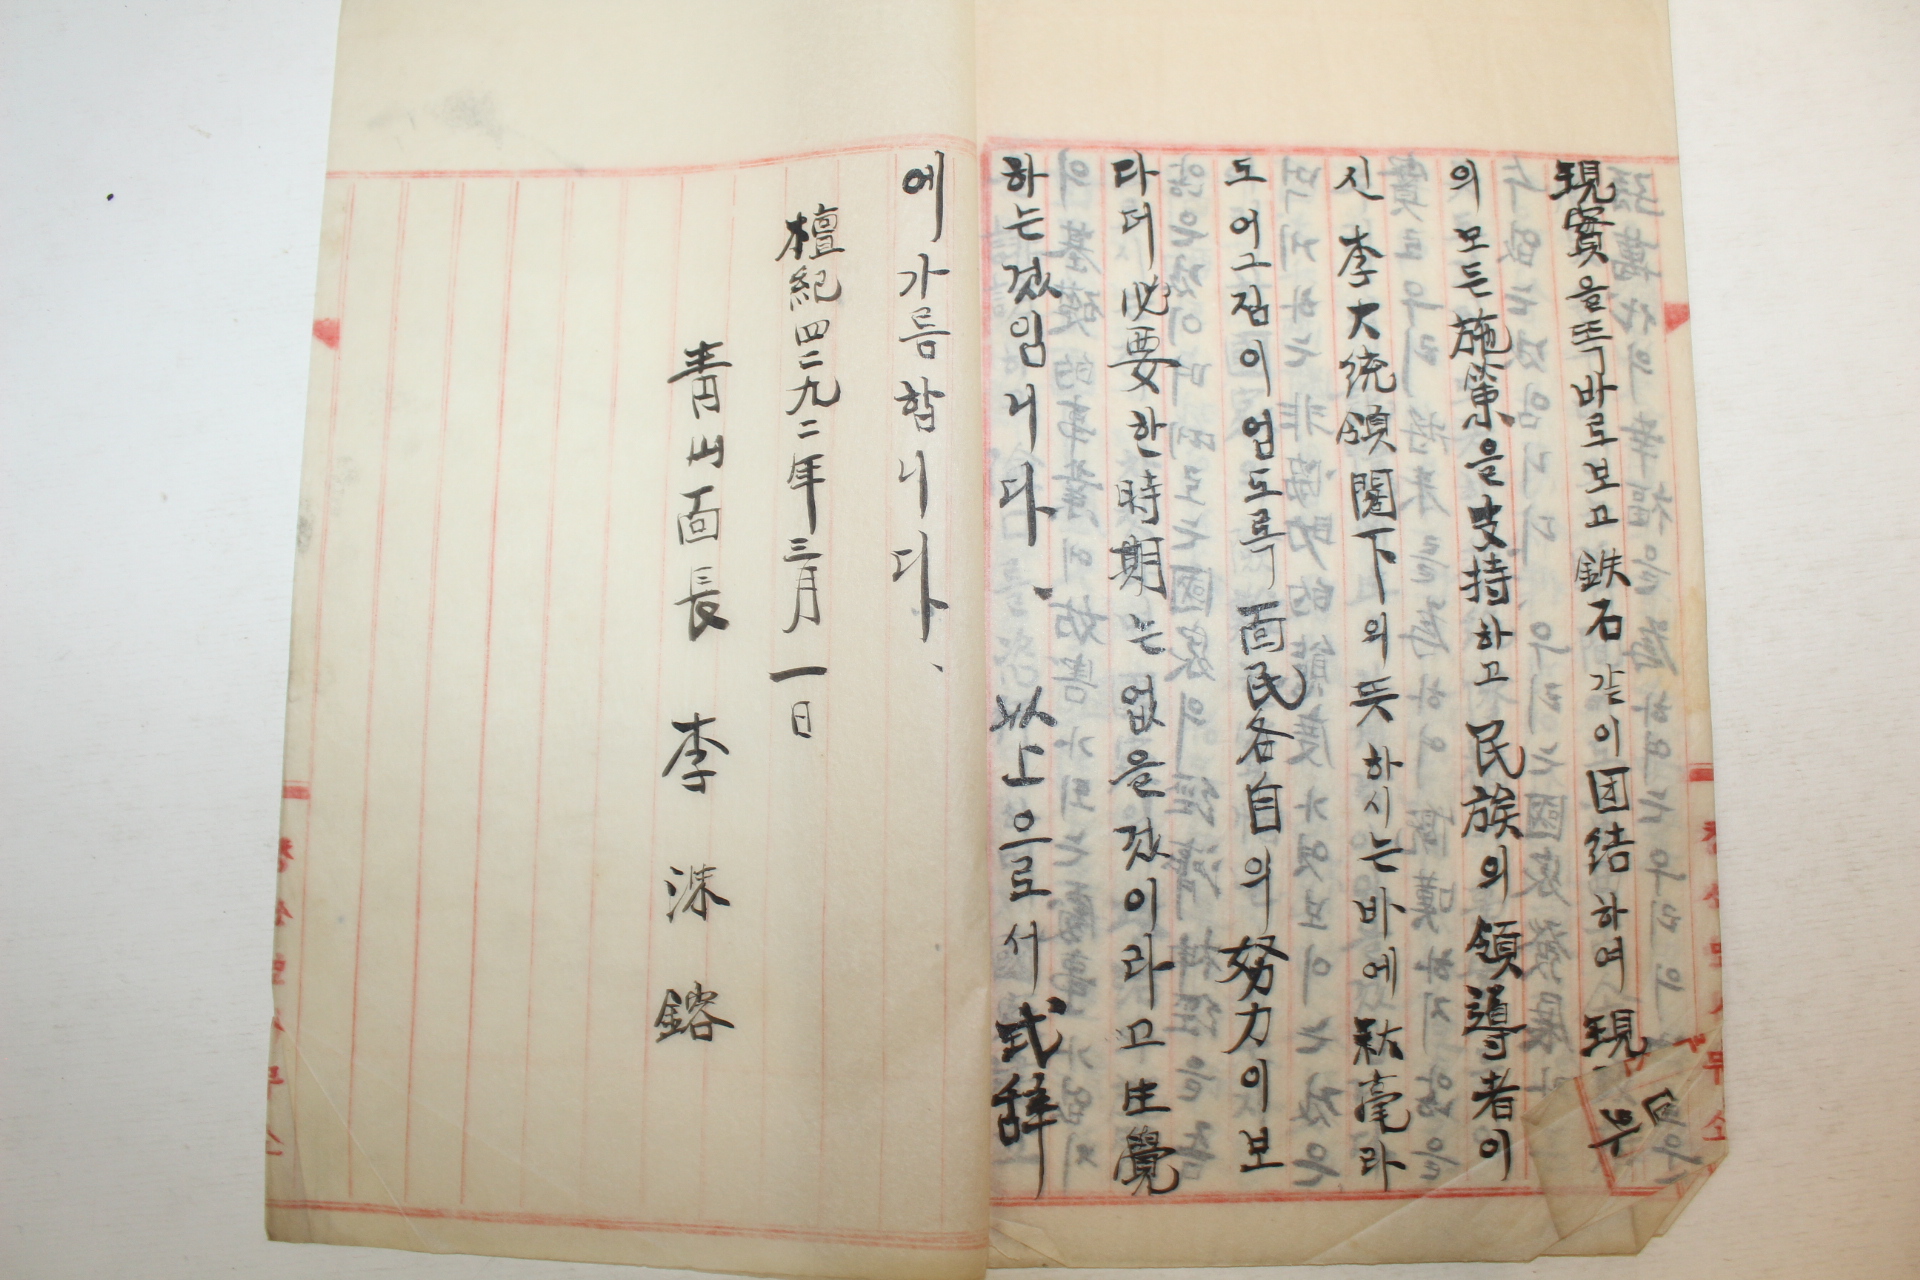 現實을 똑바로보고 鉄石같이 団結하여 現
의 모든 施策을 支持하고 民族의 領導者이
신 李大統領閣下의 뜻하시는바에 秋毫라
도 어그점이 업도록 面民各自의 努力이 보
다더 必要한 時期는 없을 겄이라고 自覺
하는겄임니다. 以上으로서 式辞
에 가름함니다.
檀紀四二九二年三月一日
青山面長 李 洙 鎔